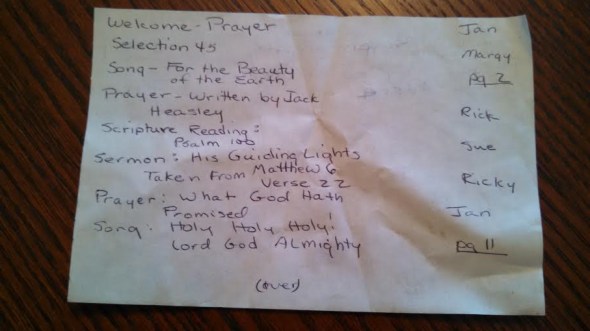 Welcome - Prayer Jan
Selection 45 Margy
Song - For the Beauty
of the Earth pg 2
Prayer - Written by Jack
Heasley Rick
Scripture Reading:
Psalm 100 Sue
Sermon: His Guiding Lights
Taken From Matthew 6
Verse 22 Ricky
Prayer: What God Hath
Promised Jan
Song: Holy Holy Holy!
Lord God Almighty pg 11
(over)